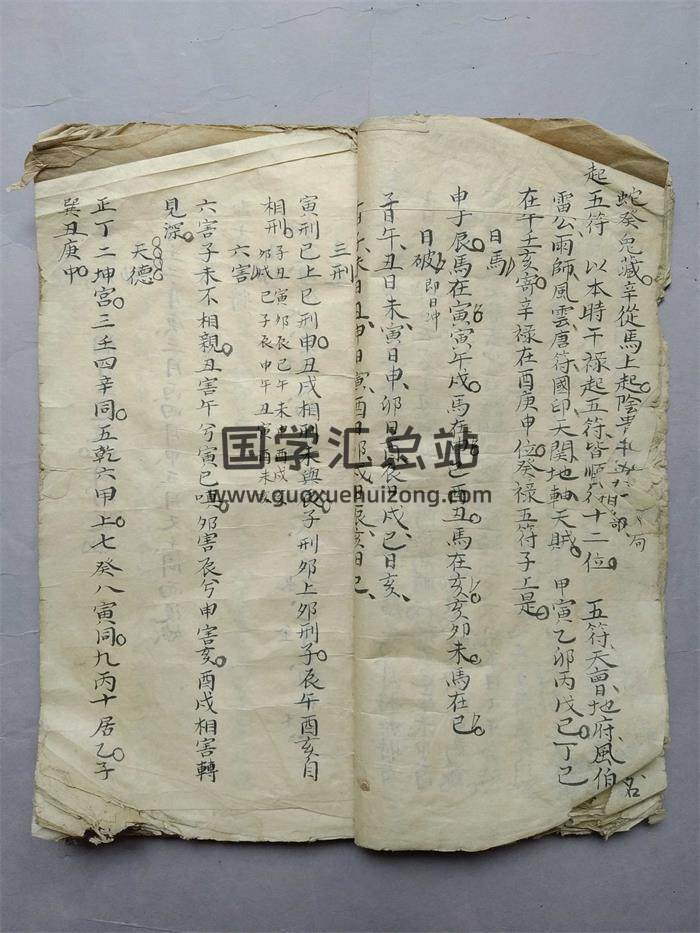 蛇癸兔藏辛從馬上起陰貴
起五符 以本時干祿起五符皆順行十二位 五符天曹地府風伯
雷公雨師風雲唐符國印天関地軸天賊 甲寅乙卯丙戊巳丁己
在午壬亥寄辛祿在酉庚申位癸祿五符子上是
日馬
申子辰馬在寅寅午戌馬在申巳酉丑馬在亥亥卯未馬在巳
日破即日冲
子日午丑日未寅日申卯日酉辰日戌巳日亥
午日子未日丑申日寅酉日卯戌日辰亥日巳
三刑
寅刑巳上巳刑申丑戌相刑未與戌子刑卯上卯刑子辰午酉亥自
相刑
六害
六害子未不相親丑害午兮寅巳嗔卯害辰兮申害亥酉戌相害轉
見深
天德
正丁二坤宫三壬四辛同五乾六甲上七癸八寅同九丙十居乙子
巽丑庚中
国学汇总站
www.guoxuehuizong.com